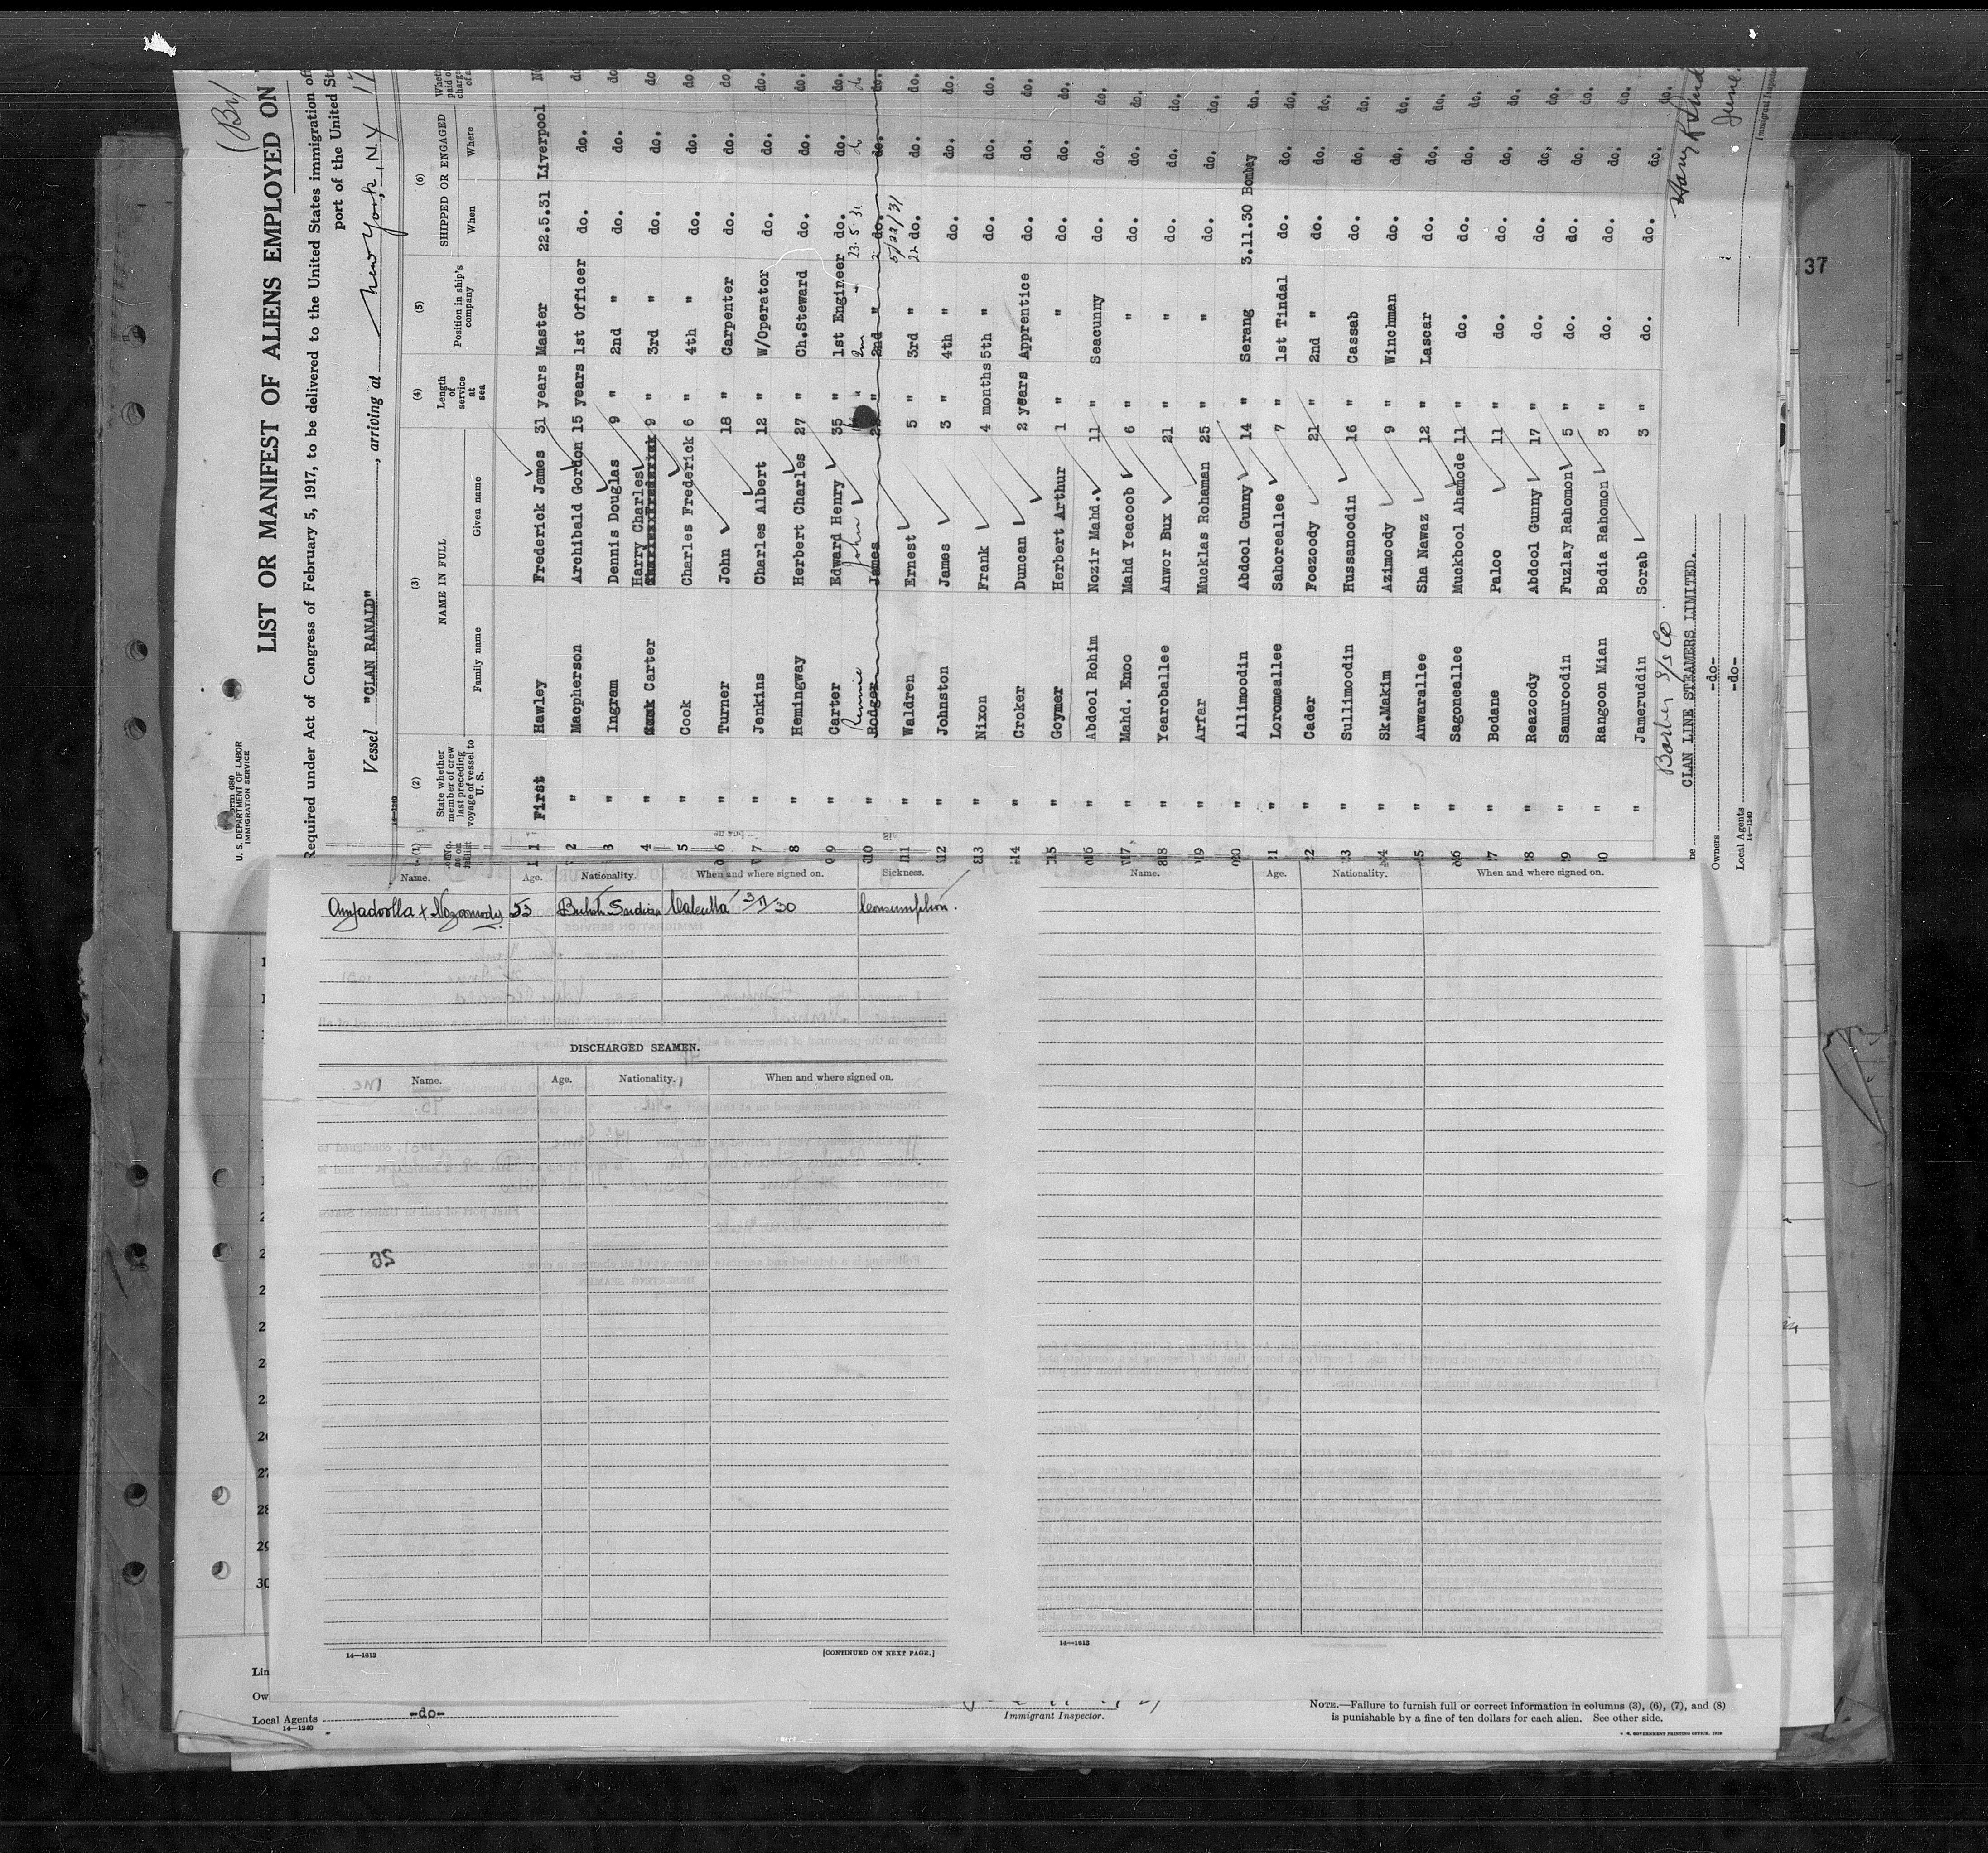 Form 680
U. S. DEPARTMENT OF LABOR
IMMIGRATION SERVICE
LIST OR MANIFEST OF ALIENS EMPLOYED ON
Required under Act of Congress of February 5, 1917, to be delivered to the United States immigration
port of the United
Vessel "CLAN RANALD", arriving at New York, N.Y
14-1240
(1) (2) (3) (4) (5) (6)
State whether member of crew last preceding voyage of vessel to U. S. NAME IN FULL Length of service at sea Position in ship's company SHIPPED OR ENGAGED
Family name Given name When Where
1 First Hawley Frederick James 31 years Master 22.5.31 Liverpool
2 " Macpherson Archibald Gordon 15 years 1st Officer do. do.
3 " Ingram Dennis Douglas 9 " 2nd " do. do. do.
4 " Carter Harry Charles 9 " 3rd " do. do. do
5 " Cook Charles Frederick 6 " 4th " do. do. do.
6 " Turner John 18 " Carpenter do. do. do.
7 " Jenkins Charles Albert 12 " W/Operator do. do. do.
8 " Hemingway Herbert Charles 27 " Ch.Steward do. do. do.
9 " Carter Edward Henry 35 " 1st Engineer do. do. do.
Rennie John 23.5.31
10 " Rodger James " 2nd " do. do. do.
5/22/31
11 " Waldren Ernest 5 " 3rd " do. do. do.
12 " Johnston James 3 " 4th " do. do. do.
13 " Nixon Frank 4 months 5th " do. do. do.
14 " Croker Duncan 2 years Apprentice do. do. do.
15 " Goymer Herbert Arthur 1 " " do. do. do.
16 " Abdool Rohim Nozir Mahd. 11 " Seacunny do. do. do.
17 " Mahd. Enoo Mahd Yeacoob 6 " " do. do. do.
18 " Yearoballee Anwor Bux 21 " " do. do. do.
19 " Arfar Mucklas Rohaman 25 " " do. do. do.
20 " Allimoodin Abdool Gunny 14 " Serang 3.11.30 Bombay do.
21 " Loromeallee Sahoreallee 7 " 1st Tindal do. do. do.
22 " Cader Foezoody 21 " 2nd " do. do. do.
23 " Sullimoodin Hussanoodin 16 " Cassab do. do. do.
24 " Sk.Makim Azimoody 9 " Winchman do. do. do.
25 " Anwarallee Sha Nawaz 12 " Lascar do. do. do.
26 " Sagoneallee Muckbool Ahamode 11 " do. do. do. do.
27 " Bodane Paloo 11 " do. do. do. do.
28 " Reazoody Abdool Gunny 17 " do. do. do. do.
29 " Samuroodin Fuzlay Rahomon 5 " do. do. do. do.
30 " Rangoon Mian Bodia Rahomon 3 " do. do. do. do.
" Jameruddin Sorab 3 " do. do. do. do.
Barber S/S Co.
CLAN LINE STEAMERS LIMITED.
Owners -do-
Local Agents -do-
14-1240
June
Immigrant Inspector
37
Name. Age. Nationality. When and where signed on. Sickness.
Amjadoolla + Nozoomody 53 British Indian Calcutta 3/11/30 Consumption.
DISCHARGED SEAMEN.
Name. Age. Nationality. When and where signed on.
14—1613
[CONTINUED ON NEXT PAGE.]
Name. Age. Nationality. When and where signed on.
14—1613
26
27
28
29
30
Lin
Ow
Local Agents -do-
14—1240
Immigrant Inspector.
NOTE.—Failure to furnish full or correct information in columns (3), (6), (7), and (8)
is punishable by a fine of ten dollars for each alien. See other side.
U. S. GOVERNMENT PRINTING OFFICE, 1929